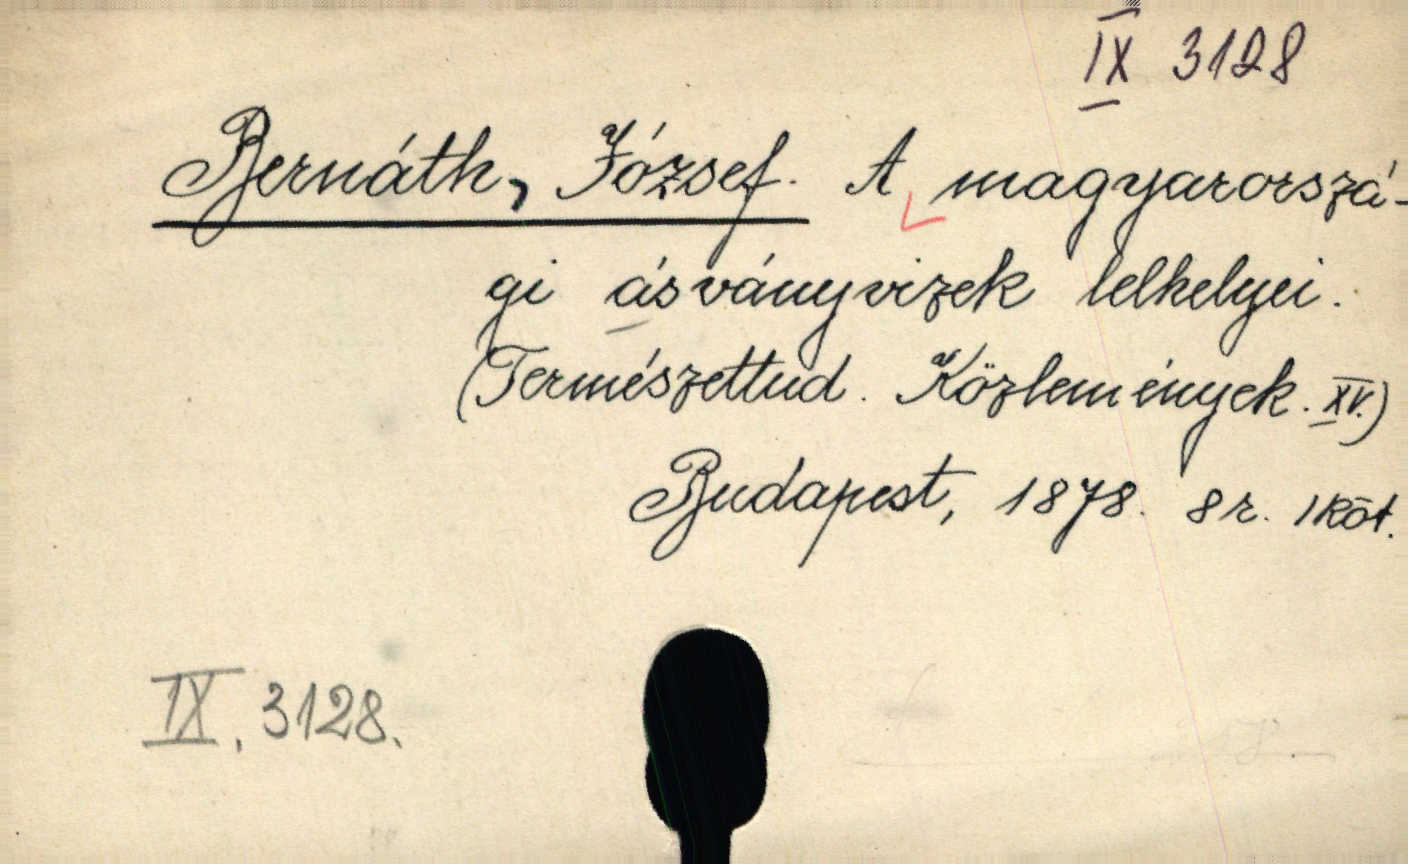 IX 3128
Bernáth, József. A magyarorszá-
gi ásványvizek lelhelyei.
(Természettud. Közlemények. XV.)
Budapest, 1878. 8r. 1 köt.
IX, 3128.